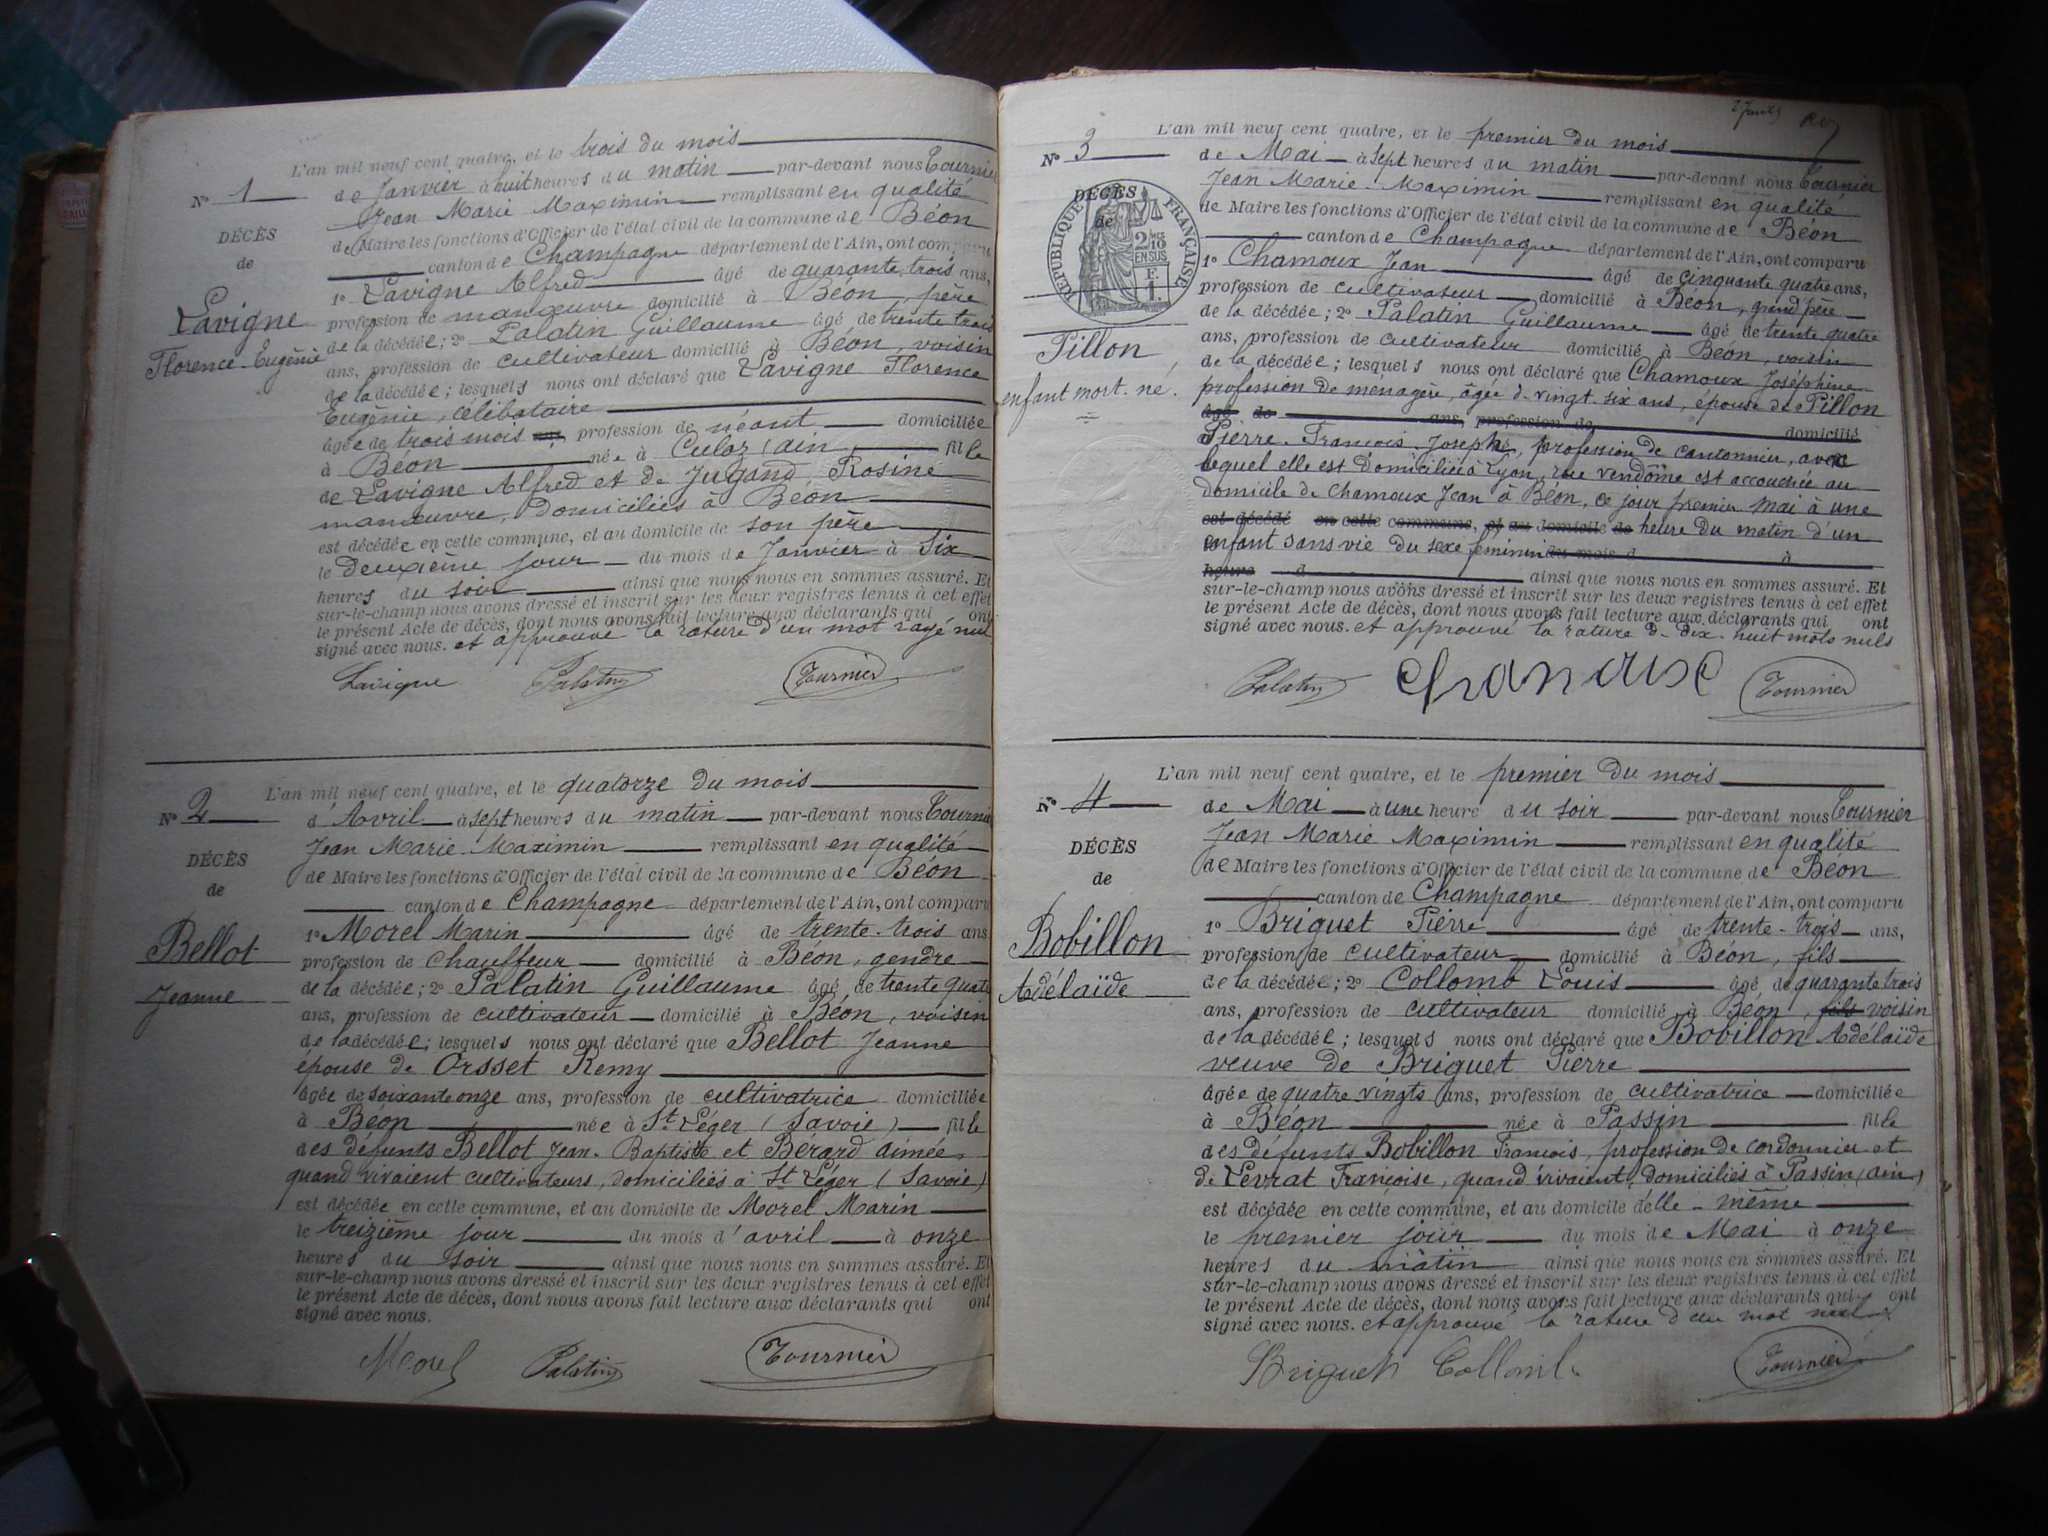 L'an mil neuf cent quatre, et le trois du mois
de Janvier à huit heures du matin par-devant nous Tournier
Jean Marie Maximin remplissant en qualité
de Maire les fonctions d'Officier de l'état civil de la commune de Béon
canton de Champagne département de l'Ain, ont comparu
1º Lavigne Alfred âgé de quarante trois ans,
profession de manœuvre domicilié à Béon, père
de la décédée; 2º Palatin Guillaume âgé de trente trois
ans, profession de cultivateur domicilié à Béon, voisin
de la décédée; lesquels nous ont déclaré que Lavigne Florence
Eugénie, célibataire
âgée de trois mois ans, profession de néant domiciliée
à Béon née à Culoz (ain) fille
de Lavigne Alfred et de Jugand Rosine
manœuvre, domiciliés à Béon
est décédée en cette commune, et au domicile de son père
le deuxième jour du mois de Janvier à Six
heures du soir ainsi que nous nous en sommes assuré. Et
sur-le-champ nous avons dressé et inscrit sur les deux registres tenus à cet effet
le présent Acte de décès, dont nous avons fait lecture aux déclarants qui ont
signé avec nous. et approuvé la rature d'un mot rayé nul
Lavigne Palatin Tournier
Nº 1
DÉCÈS
de
Lavigne
Florence-Eugénie
L'an mil neuf cent quatre, et le quatorze du mois
d'Avril à sept heures du matin par-devant nous Tournier
Jean Marie Maximin remplissant en qualité
de Maire les fonctions d'Officier de l'état civil de la commune de Béon
canton de Champagne département de l'Ain, ont comparu
1º Morel Marin âgé de trente-trois ans
profession de Chauffeur domicilié à Béon, gendre
de la décédée; 2º Palatin Guillaume âgé de trente quatre
ans, profession de cultivateur domicilié à Béon, voisin
de la décédée; lesquels nous ont déclaré que Bellot Jeanne
épouse de Orsset Remy
âgée de soixante onze ans, profession de cultivatrice domiciliée
à Béon née à St Léger (Savoie) fille
des défunts Bellot Jean-Baptiste et Bérard aimée
quand vivaient cultivateurs, domiciliés à St Léger (Savoie)
est décédée en cette commune, et au domicile de Morel Marin
le treizième jour du mois d'avril à onze
heures du soir ainsi que nous nous en sommes assuré. Et
sur-le-champ nous avons dressé et inscrit sur les deux registres tenus à cet effet
le présent Acte de décès, dont nous avons fait lecture aux déclarants qui ont
signé avec nous.
Morel Palatin Tournier
Nº 2
DÉCÈS
de
Bellot
Jeanne
L'an mil neuf cent quatre, et le premier du mois
de Mai à sept heures du matin par-devant nous Tournier
Jean Marie-Maximin remplissant en qualité
de Maire les fonctions d'Officier de l'état civil de la commune de Béon
canton de Champagne département de l'Ain, ont comparu
1º Chamoux Jean âgé de cinquante quatre ans,
profession de cultivateur domicilié à Béon, grand père
de la décédée; 2º Palatin Guillaume âgé de trente quatre
ans, profession de cultivateur domicilié à Béon, voisin
de la décédée; lesquels nous ont déclaré que Chamoux Joséphine
profession de menagère, âgée de vingt-six ans, épouse de Pillon
âgé de ans, profession de domicilié
Pierre-François-Joseph, profession de cantonnier, avec
lequel elle est domiciliée à Lyon, rue Vendôme est accouchée au
domicile de Chamoux Jean à Béon, ce jour premier Mai à une
est décédé en cette commune, et au domicile de heure du matin d'un
enfant sans vie du sexe féminin du mois d à
heure d ainsi que nous nous en sommes assuré. Et
sur-le-champ nous avons dressé et inscrit sur les deux registres tenus à cet effet
le présent Acte de décès, dont nous avons fait lecture aux déclarants qui ont
signé avec nous. et approuvé la rature de dix-huit mots nuls
Palatin Chamoux Tournier
Nº 3
DÉCÈS
de
RÉPUBLIQUE FRANÇAISE
2/10 EN SUS
F. 1.
Pillon
enfant mort-né.
L'an mil neuf cent quatre, et le premier du mois
de Mai à une heure du soir par-devant nous Tournier
Jean Marie Maximin remplissant en qualité
de Maire les fonctions d'Officier de l'état civil de la commune de Béon
canton de Champagne département de l'Ain, ont comparu
1º Briguet Pierre âgé de trente-trois ans,
profession de cultivateur domicilié à Béon, fils
de la décédée; 2º Collomb Louis âgé de quarante trois
ans, profession de cultivateur domicilié à Béon, fils voisin
de la décédée; lesquels nous ont déclaré que Bobillon Adélaïde
veuve de Briguet Pierre
âgée de quatre vingts ans, profession de cultivatrice domiciliée
à Béon née à Passin fille
des défunts Bobillon François, profession de cordonnier et
de Levrat Françoise, quand vivaient domiciliés à Passin (ain)
est décédée en cette commune, et au domicile d'elle-même
le premier jour du mois de Mai à onze
heures du matin ainsi que nous nous en sommes assuré. Et
sur-le-champ nous avons dressé et inscrit sur les deux registres tenus à cet effet
le présent Acte de décès, dont nous avons fait lecture aux déclarants qui ont
signé avec nous. et approuvé la rature d'un mot nul
Briguet Collomb Tournier
Nº 4
DÉCÈS
de
Bobillon
Adélaïde